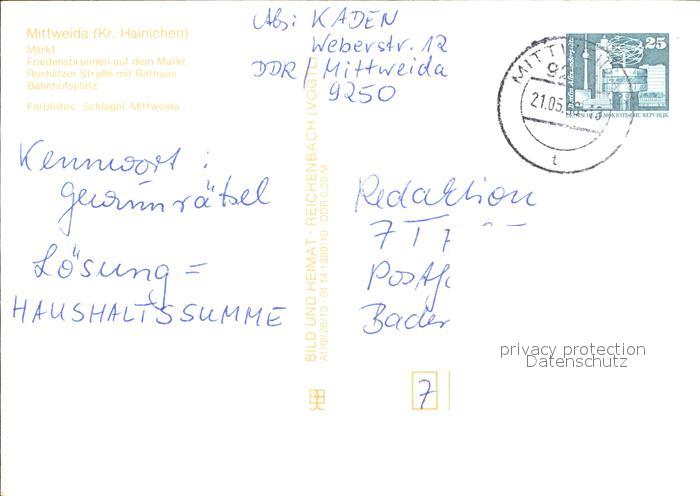 Mittweida (Kr. Hainichen)
Markt
Friedensbrunnen auf dem Markt
Rochlitzer Straße mit Rathaus
Bahnhofsplatz
Farbfotos: Schlegel, Mittweida
Abs: KADEN
Weberstr. 12
DDR / Mittweida
9250
25
Berlin, Alexanderplatz
DEUTSCHE DEMOKRATISCHE REPUBLIK
MITTWEIDA
21.05.
t
Kennwort:
Gewinnrätsel
Lösung =
HAUSHALTSSUMME
BILD UND HEIMAT · REICHENBACH (VOGTL
A1/III/26/13 01 14 1 389/10 · DDR 0,20 M
Redaktion
7
Bader
7
privacy protection
Datenschutz